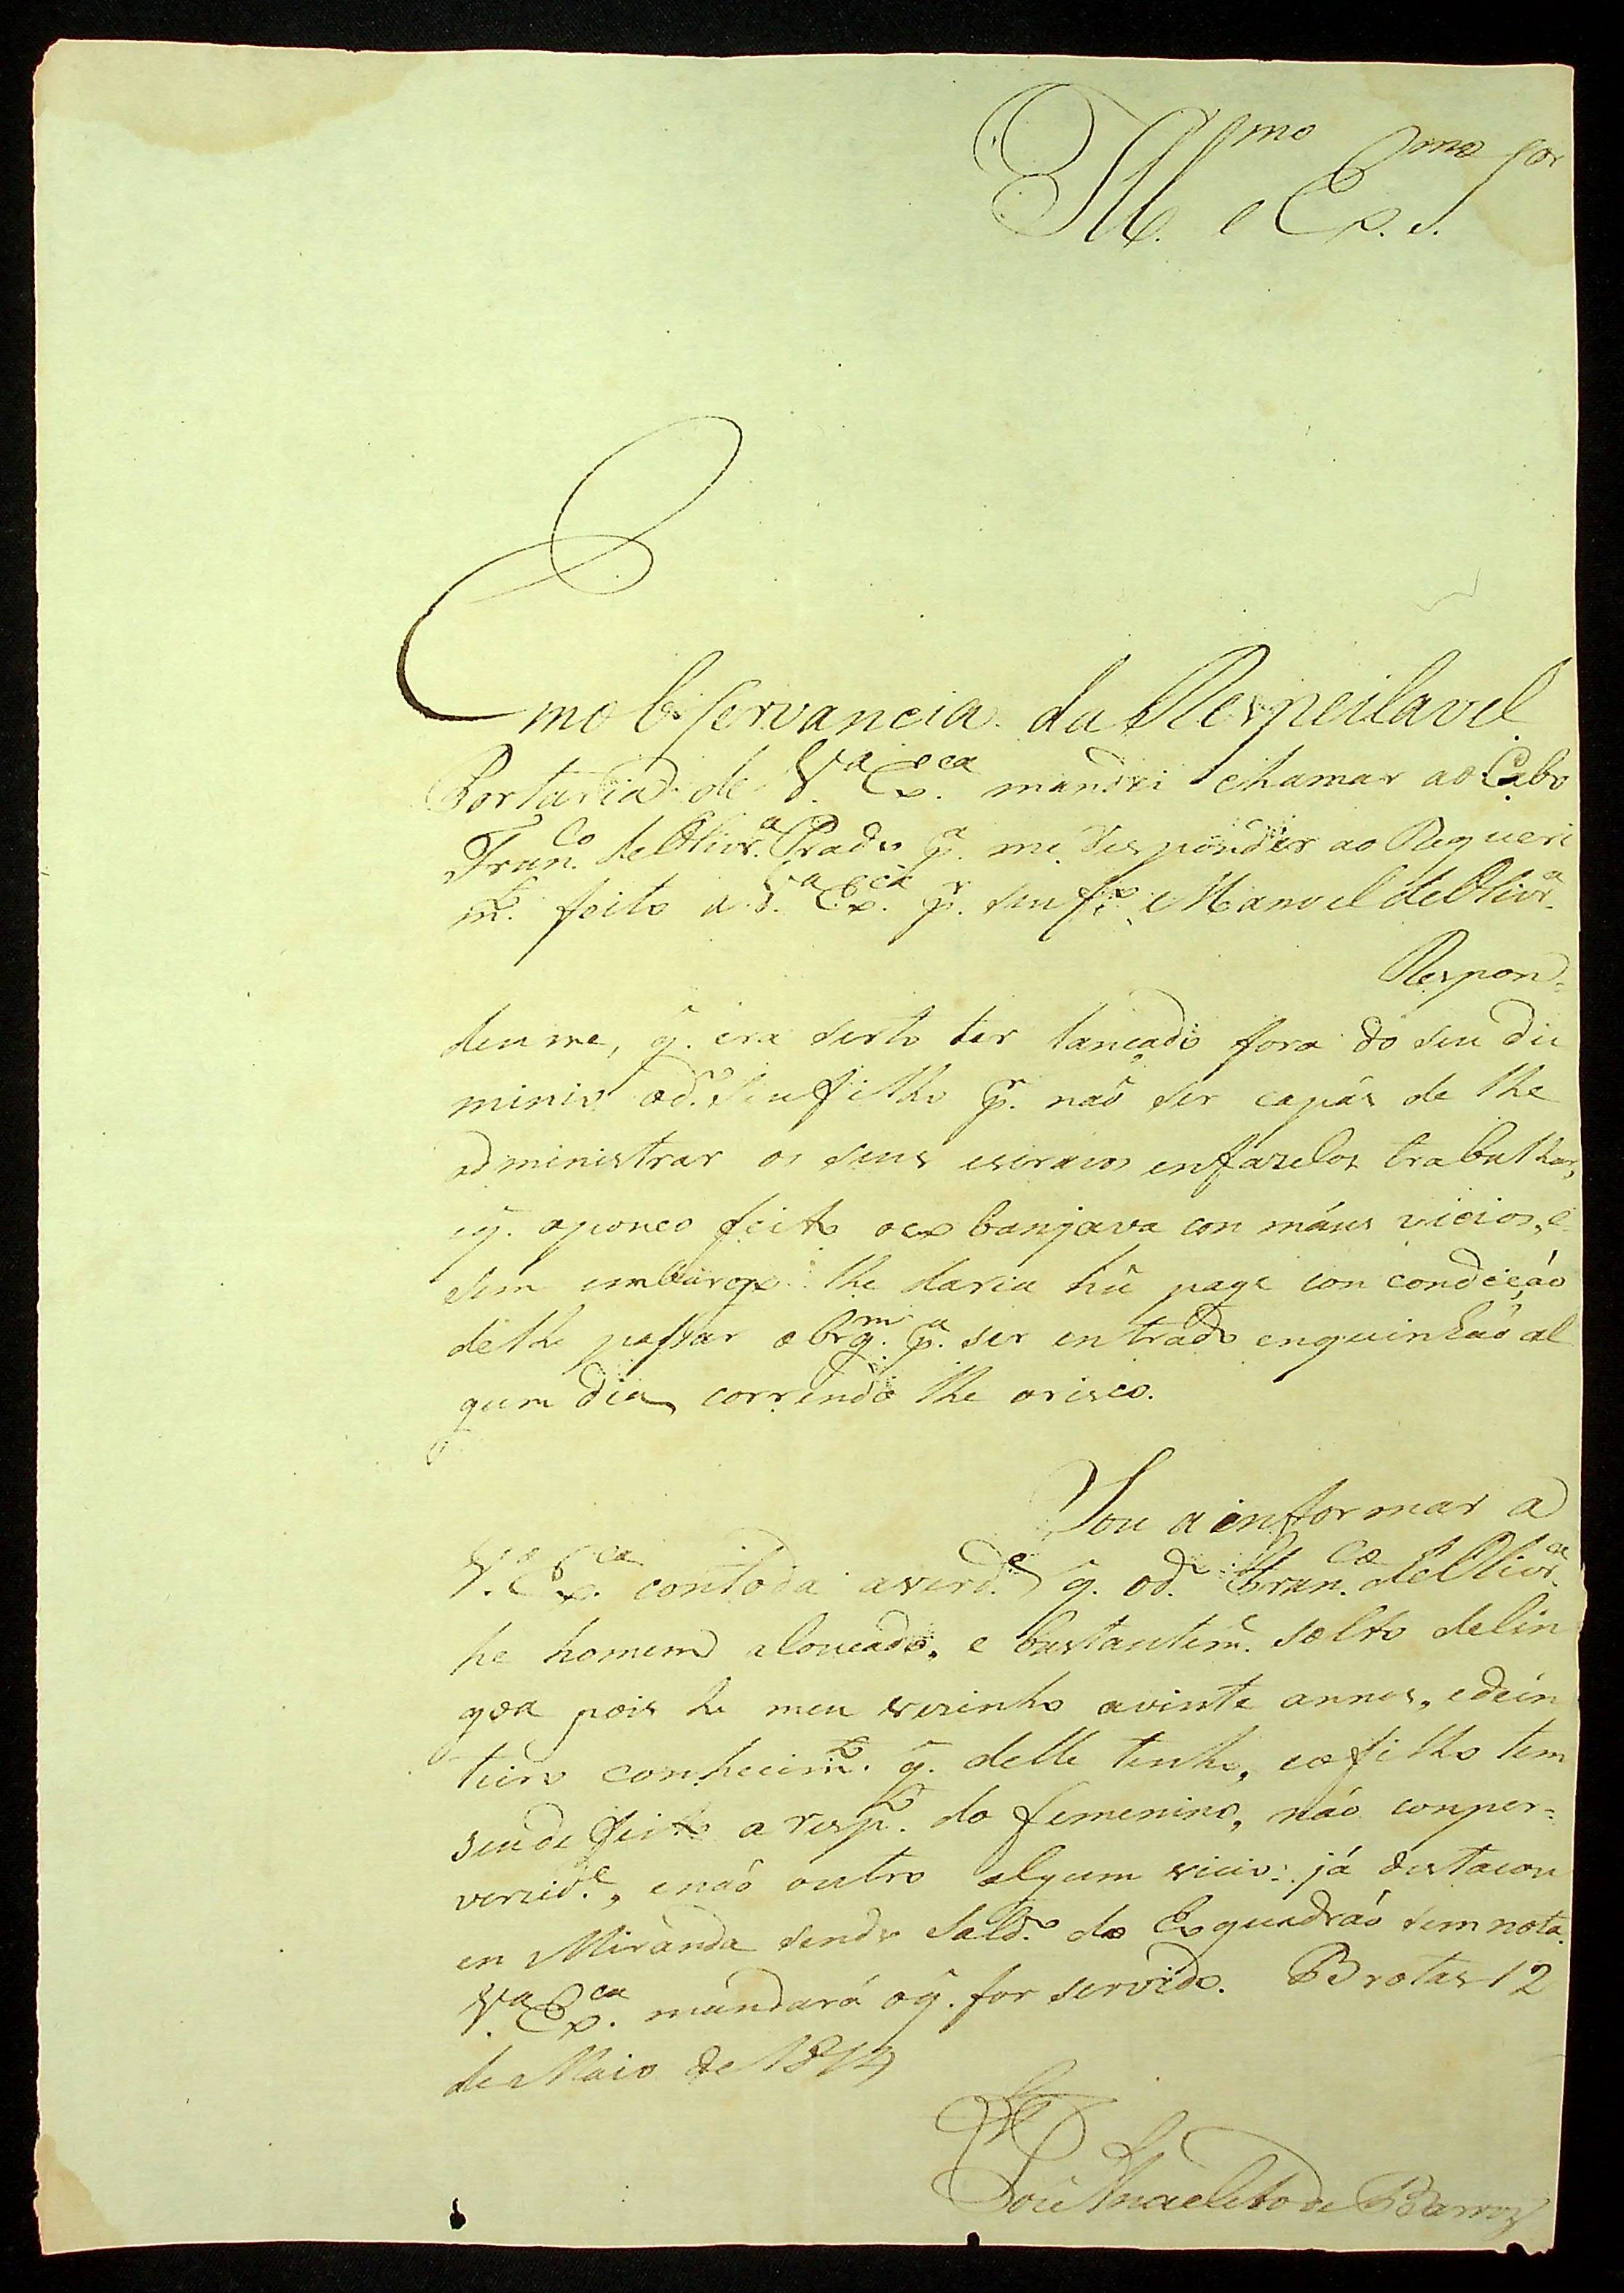 Ill.mo e Ex.mo S.or
Em observancia da Respeitavel
Portaria de V.a Ex.ca mandei chamar ao Cabo
Fran.co de Olivr.a Prado p.a me responder ao Requeri
m.to feito a V.a Ex.ca p.r seu f.o Manoel de Olivr.a
Respon=
deume, q. era serto ter lancado fora do seu du
minio od.o seu filho p.r naõ ser capás de lhe
administrar os seus escravos enfazelos trabalhar,
eq. opouco feito oexbanjava con máus vicios, e
sem embargo lhe daria hũ page con condição
delhe passar obrig.m p.a ser entrado enquinhaõ al
gum dia, correndo lhe orisco.
Sou a informar a
V.a Ex.ca contoda averd.e q. od.o Fran.co de Olivr.a
he homem aloucado, e bastantem.te solto delin
goa pois he meu vezinho avinte annos, edein
teiro conhecim.to q. delle tenho, eofilho tem
seu defeito a resp.to do femenino, não conper=
vercid.e, enaõ outro algum vicio: já destacou
en Miranda sendo Sold.o do Exquadraõ sem nota.
V.a Ex.ca mandará oq. for servido. Brotas 12
de Maio de 1814
José Anacleto de Barros